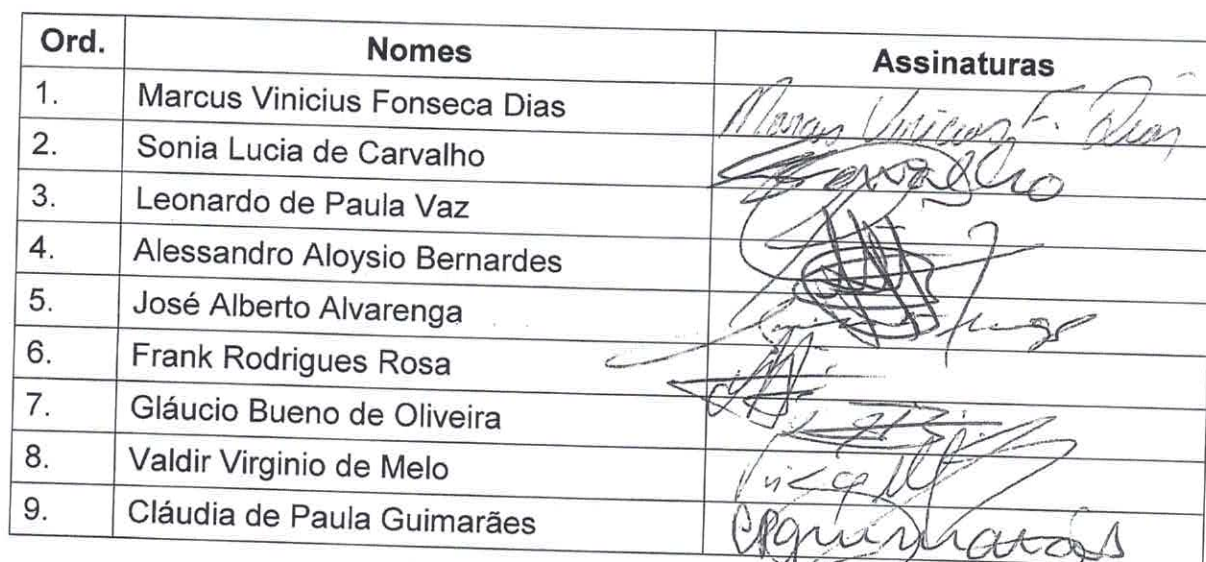 Ord. Nomes Assinaturas
1. Marcus Vinicius Fonseca Dias Marcus Vinicius F. Dias
2. Sonia Lucia de Carvalho Carvalho
3. Leonardo de Paula Vaz
4. Alessandro Aloysio Bernardes
5. José Alberto Alvarenga
6. Frank Rodrigues Rosa
7. Gláucio Bueno de Oliveira
8. Valdir Virginio de Melo
9. Cláudia de Paula Guimarães CPGuimarães